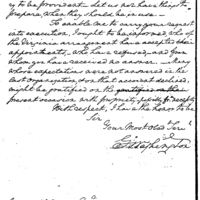 ry to be provident — Let us not have things to
prepare, when they should be in use —
To enable me to carry your request
into execution, I ought to be informed who of
the Divisions arrangement have accepted their
appointments, who have refused, and from
whom you have received no answer. — Many
whose expectations were not answered in the
last organization, or on that account declined,
might be gratified on the
present occasion with propriety,
With respect, I have the honor to be
Sir
Your Most Obed Ser
G Washington